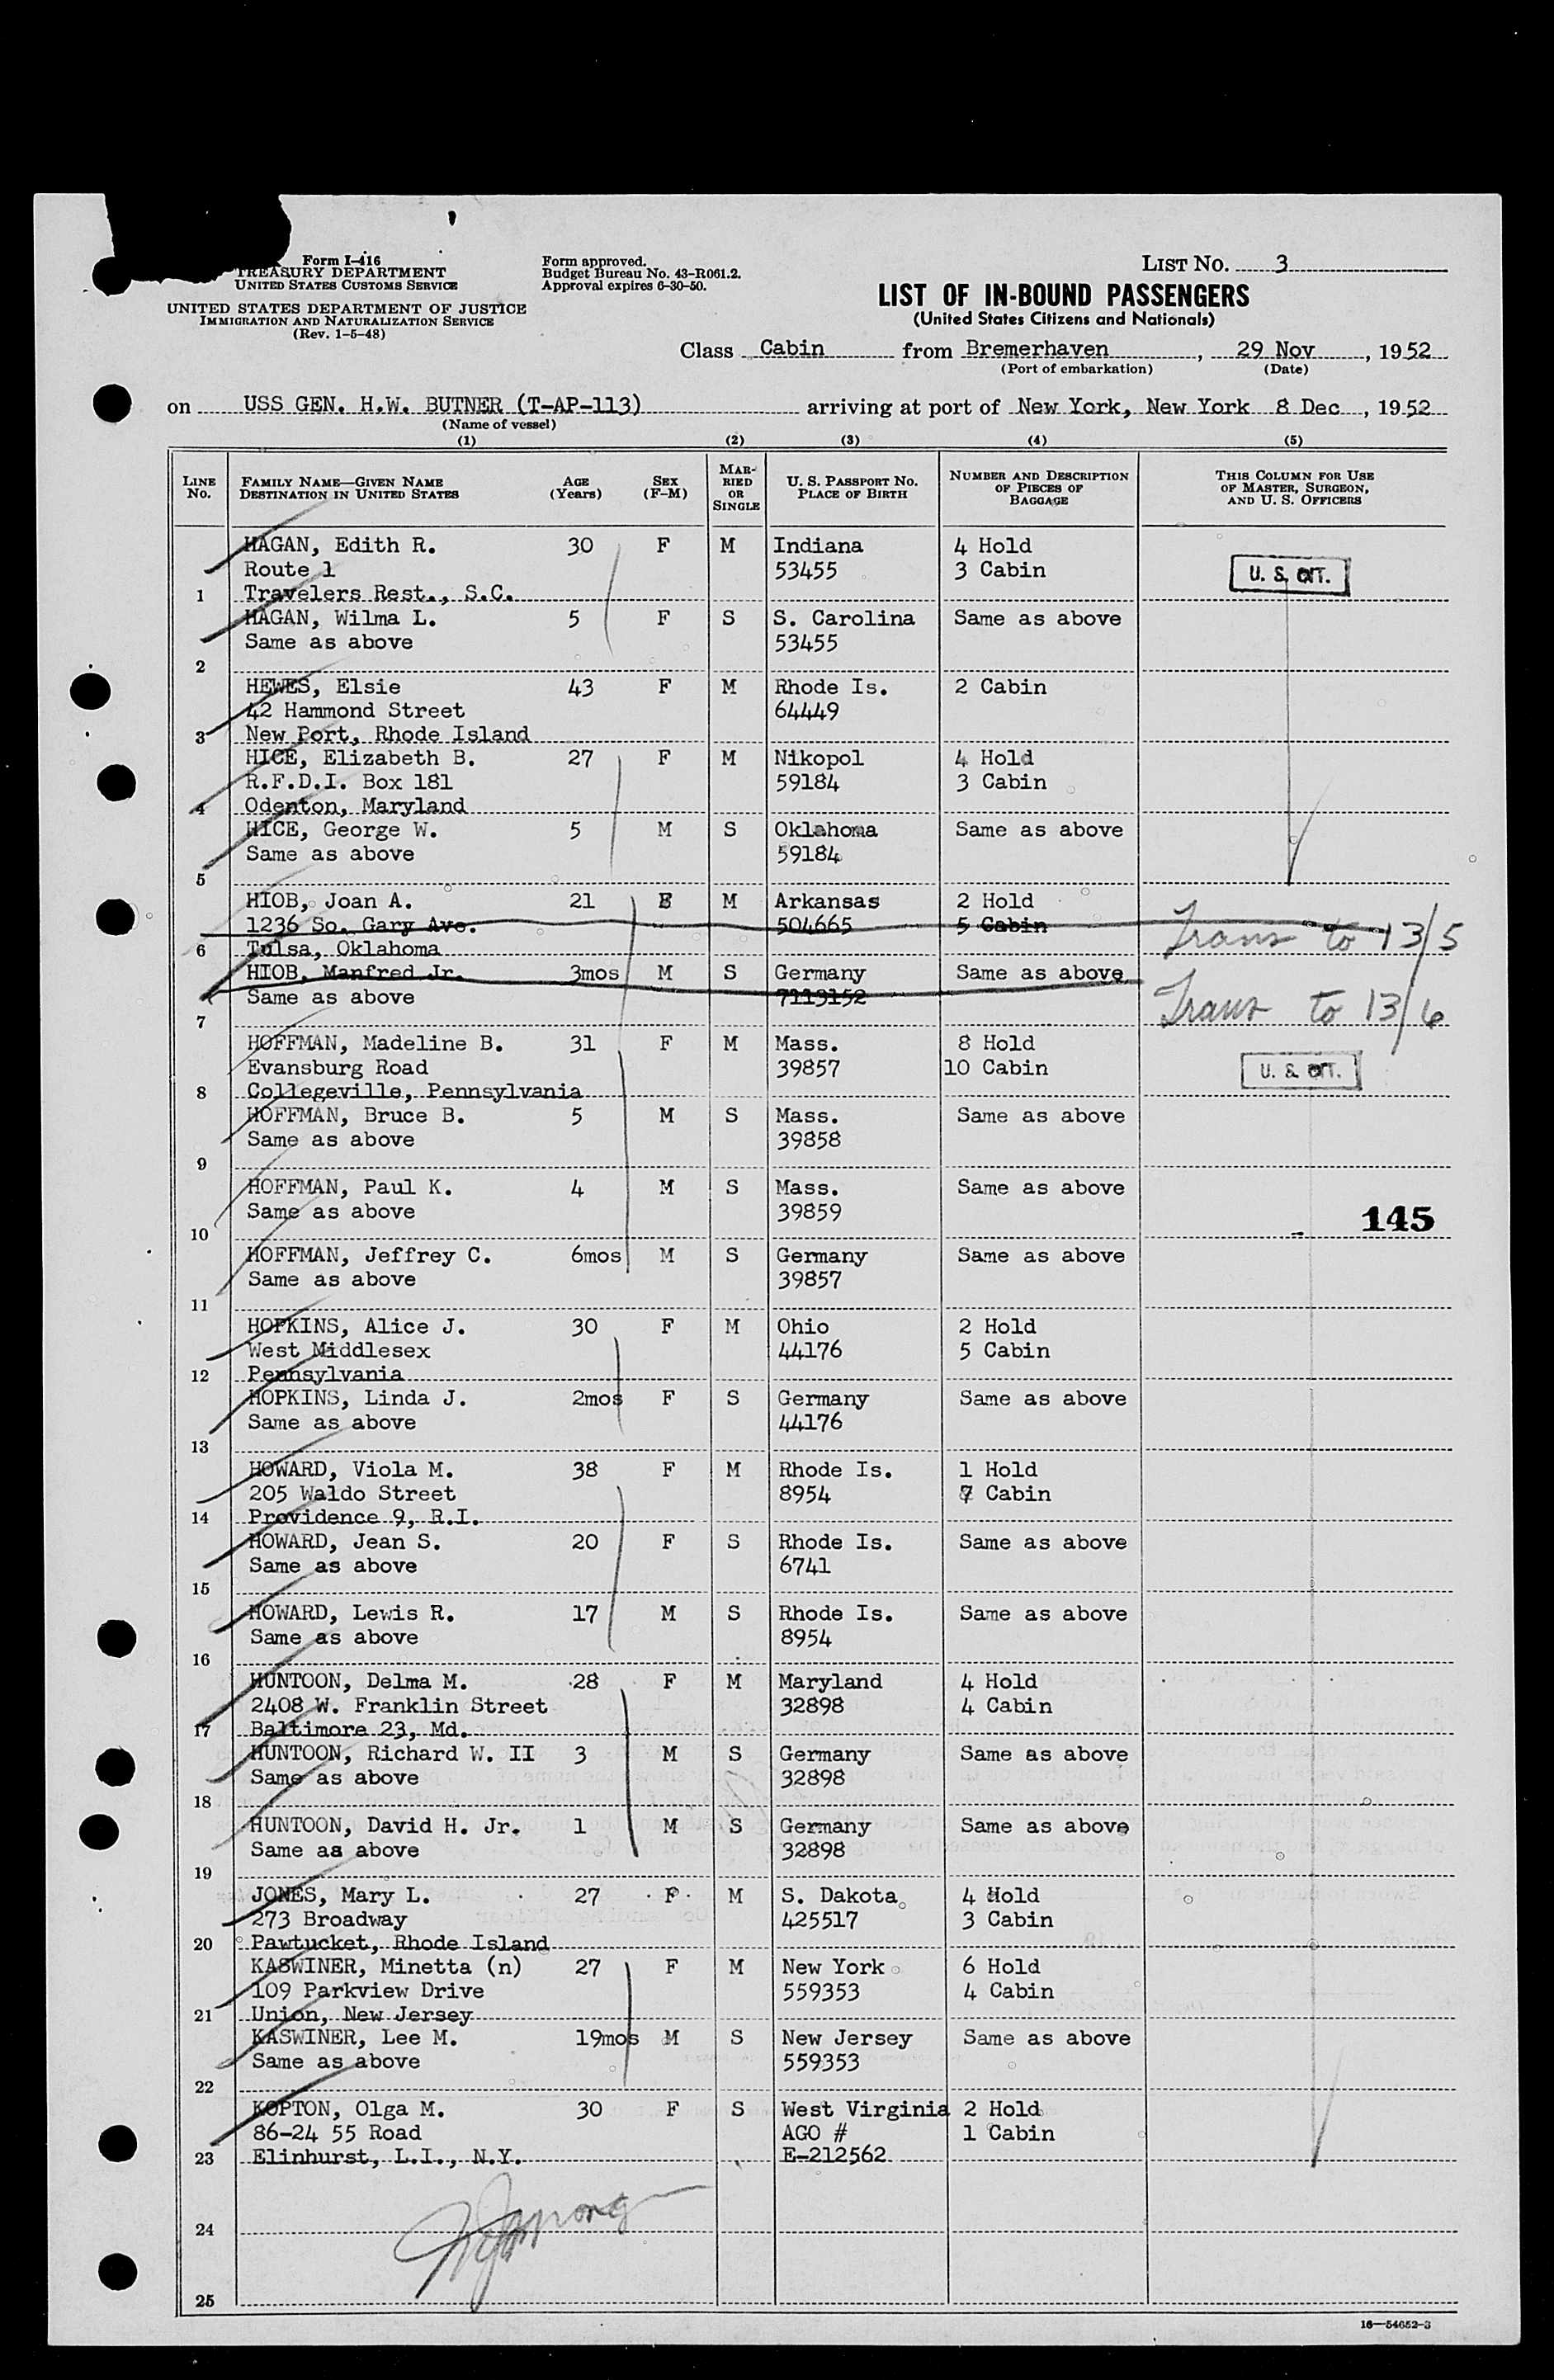 Form I-416
TREASURY DEPARTMENT
UNITED STATES CUSTOMS SERVICE
UNITED STATES DEPARTMENT OF JUSTICE
IMMIGRATION AND NATURALIZATION SERVICE
(Rev. 1-5-48)
Form approved.
Budget Bureau No. 43-R061.2.
Approval expires 6-30-50.
LIST NO. 3
LIST OF IN-BOUND PASSENGERS
(United States Citizens and Nationals)
Class Cabin from Bremerhaven, 29 Nov, 1952
(Port of embarkation) (Date)
on USS GEN. H.W. BUTNER (T-AP-113) arriving at port of New York, New York 8 Dec, 1952
(Name of vessel)
(1) (2) (3) (4) (5)
LINE NO.
FAMILY NAME—GIVEN NAME
DESTINATION IN UNITED STATES
AGE (Years)
SEX (F-M)
MARRIED OR SINGLE
U. S. PASSPORT NO.
PLACE OF BIRTH
NUMBER AND DESCRIPTION OF PIECES OF BAGGAGE
THIS COLUMN FOR USE OF MASTER, SURGEON, AND U. S. OFFICERS
HAGAN, Edith R. 30 F M Indiana 4 Hold
Route 1 53455 3 Cabin U. S. CIT.
1 Travelers Rest., S.C.
HAGAN, Wilma L. 5 F S S. Carolina Same as above
Same as above 53455
2
HEWES, Elsie 43 F M Rhode Is. 2 Cabin
42 Hammond Street 64449
3 New Port, Rhode Island
HICE, Elizabeth B. 27 F M Nikopol 4 Hold
R.F.D.I. Box 181 59184 3 Cabin
4 Odenton, Maryland
HICE, George W. 5 M S Oklahoma Same as above
Same as above 59184
5
HIOB, Joan A. 21 F M Arkansas 2 Hold
1236 So. Gary Ave. 504665 5 Cabin Trans to 13/5
6 Tulsa, Oklahoma
HIOB, Manfred Jr. 3mos M S Germany Same as above
Same as above 7113152 Trans to 13/6
7
HOFFMAN, Madeline B. 31 F M Mass. 8 Hold
Evansburg Road 39857 10 Cabin U. S. CIT.
8 Collegeville, Pennsylvania
HOFFMAN, Bruce B. 5 M S Mass. Same as above
Same as above 39858
9
HOFFMAN, Paul K. 4 M S Mass. Same as above
Same as above 39859 145
10
HOFFMAN, Jeffrey C. 6mos M S Germany Same as above
Same as above 39857
11
HOPKINS, Alice J. 30 F M Ohio 2 Hold
West Middlesex 44176 5 Cabin
12 Pennsylvania
HOPKINS, Linda J. 2mos F S Germany Same as above
Same as above 44176
13
HOWARD, Viola M. 38 F M Rhode Is. 1 Hold
205 Waldo Street 8954 7 Cabin
14 Providence 9, R.I.
HOWARD, Jean S. 20 F S Rhode Is. Same as above
Same as above 6741
15
HOWARD, Lewis R. 17 M S Rhode Is. Same as above
Same as above 8954
16
HUNTOON, Delma M. 28 F M Maryland 4 Hold
2408 W. Franklin Street 32898 4 Cabin
17 Baltimore 23, Md.
HUNTOON, Richard W. II 3 M S Germany Same as above
Same as above 32898
18
HUNTOON, David H. Jr. 1 M S Germany Same as above
Same as above 32898
19
JONES, Mary L. 27 F M S. Dakota 4 Hold
273 Broadway 425517 3 Cabin
20 Pawtucket, Rhode Island
KASWINER, Minetta (n) 27 F M New York 6 Hold
109 Parkview Drive 559353 4 Cabin
21 Union, New Jersey
KASWINER, Lee M. 19mos M S New Jersey Same as above
Same as above 559353
22
KOPTON, Olga M. 30 F S West Virginia 2 Hold
86-24 55 Road AGO # 1 Cabin
23 Elinhurst, L.I., N.Y. E-212562
24
25
16—54652-3